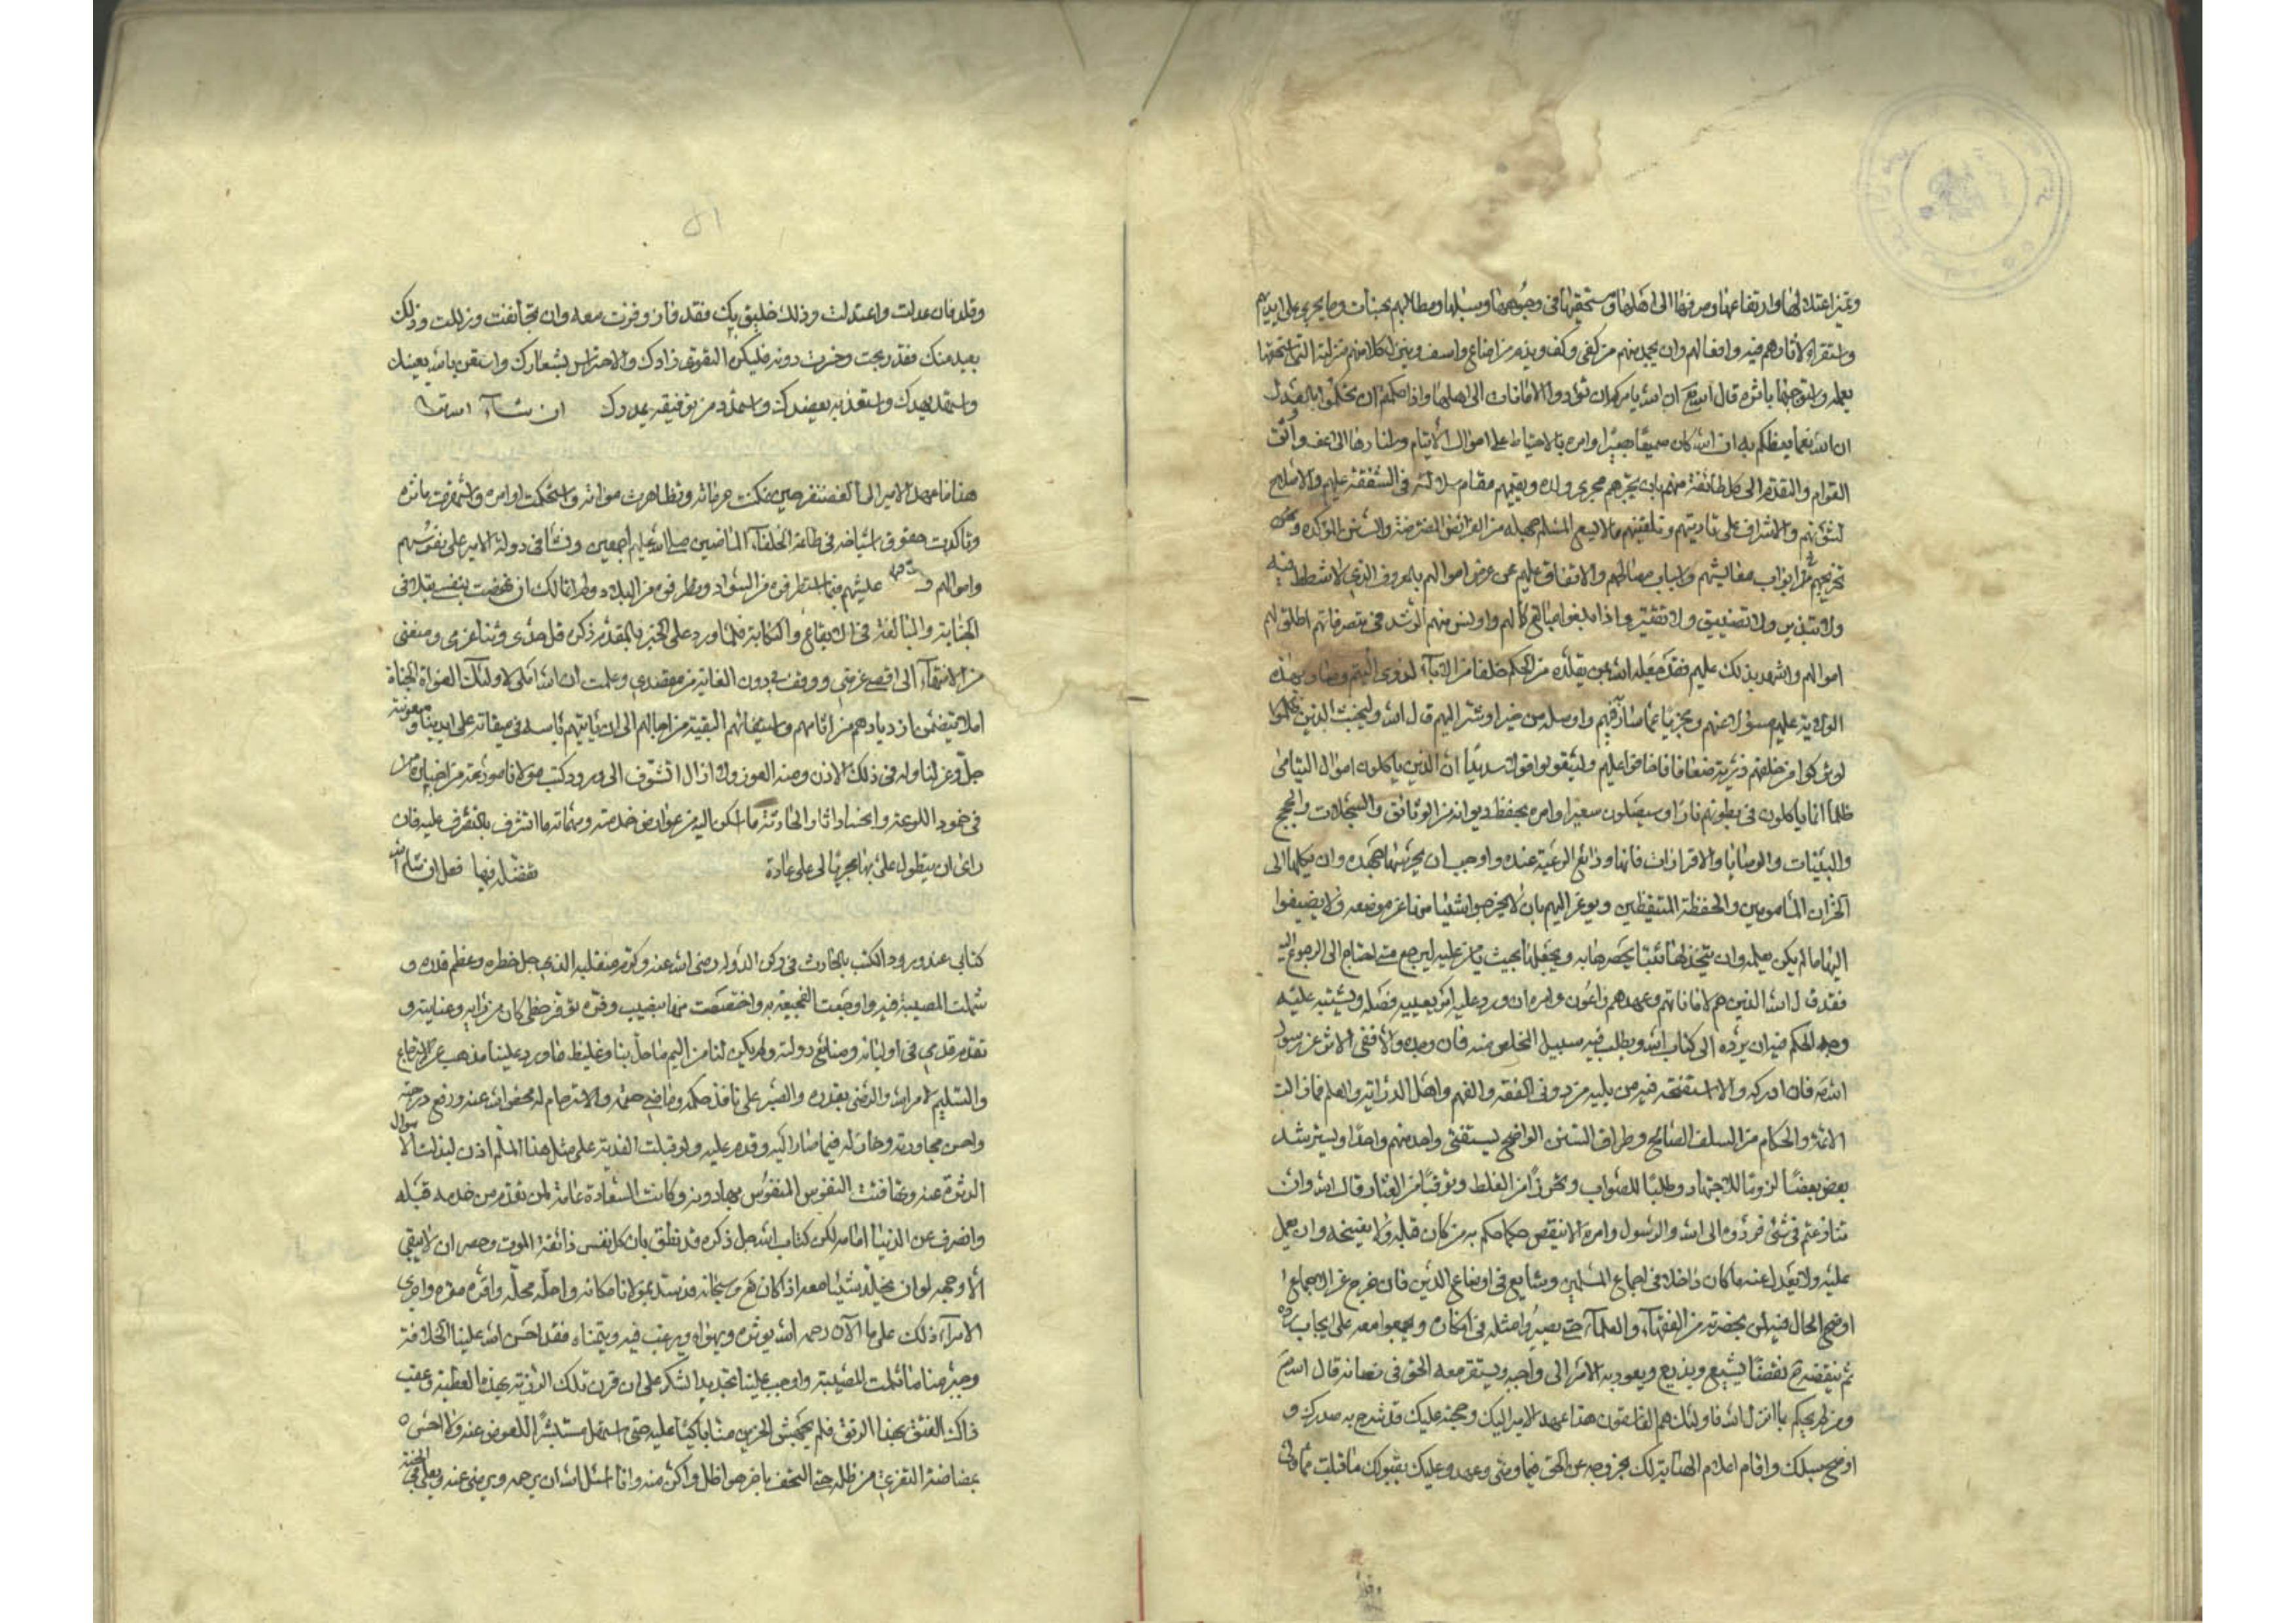 وعن اعتدالها وارتفاعها وصرفها الى اهلها ومستحقيها في وجوهها وسبلها ومطالبهم بحسبانات وما يجري على ايديهم
واستقراء لاثارهم فيه وافعالهم وان يحمد منهم من كفى وكف ويذم من اضاع واسف وينزل كلا منهم منزلته التي استحقها
بعمله واستوجبها باثره قال الله تع ان الله يامركم ان تؤدوا الامانات الى اهلها واذا حكمتم ان تحكموا بالعدل
ان الله نعما يعظكم به ان الله كان سميعا بصيرا وامره بالاحتياط على اموال الايتام واسنادها الى اعف واثق
القوام والتقدم الى كل طائفة منهم بان يجريهم مجرى ولده ويقيمهم مقام سلالته في الشفقة عليهم والاصلاح
لشؤنهم والاشراف على تاديبهم وتلقينهم ما لا يسع المسلم جهله من الفرائض المفترضة والسنن المؤكدة و
تخريجهم في ابواب معايشهم واسباب مصالحهم والانفاق عليهم من عرض اموالهم بالمعروف الذي لا شطط فيه
ولا تبذير ولا تضييق ولا تقتير واذا بلغوا مبالغ كمالهم واونس منهم الرشد في تصرفاتهم اطلق لهم
اموالهم واشهد بذلك عليهم فقد جعله الله بمن يقلده من الحكم خلفا من الآباء لذوي اليتم وصار بهذه
الولاية عليهم مسؤلا عنهم ومجزيا عما سار فيهم واوصله من خير او شر اليهم قال الله وليخش الذين
لو تركوا من خلفهم ذرية ضعافا خافوا عليهم وليتقوا الله وليقولوا قولا سديدا ان الذين ياكلون اموال اليتامى
ظلما انما ياكلون في بطونهم نارا وسيصلون سعيرا وامره بحفظ ديوانه من الوثائق والسجلات والحجج
والبينات والوصايا والاقرارات فانها ودائع الرعية عنده واوجب ان يحرسها جهده وان يكلها الى
الخزان المامونين والحفظة المتيقظين ويوعز اليهم بان لا يخرجوا شيئا منها عن موضعه ولا يضيفوا
اليها ما لم يكن بعلمه وان يتخذ لها بيتا يحصرها به ويجعلها بحيث يامن عليه ليرجع متى احتاج الى الرجوع اليه
فقد قال الله الذين هم لاماناتهم وعهدهم راعون وامره ان ورد عليه امر يعييه فصله ويشتبه عليه
وجه الحكم فيه ان يرده الى كتاب الله ويطلب فيه سبيل المخلص منه فان وجده والا ففي الاثر عن رسول
الله ص فان ادركه والا استفتى فيه من يليه من ذوي الفقه والفهم واهل الدراية والعلم فما زالت
الائمة والحكام من السلف الصالح وطراق السنن الواضح يستفتي واحد منهم واحدا ويسترشد
بعض بعضا لزوما للاجتهاد وطلبا للصواب وتحرزا من الغلط وتوقيا من العثار قال الله وان
تنازعتم في شئ فردوه الى الله والرسول وامره الا ينقض حكما حكم به من كان قبله ولا يفسخه وان يعمل
عليه ولا يعدل عنه ما كان داخلا في اجماع المسلمين وشايع في اوضاع الدين فان خرج عن الاجماع
اوضح الحال فيه لمن بحضرته من الفقهاء والعلماء حتى يصيروا مثله في انكاره ويجمعوا معه على ايجاب رده
ثم ينقضه ح نقضا يشيع ويذيع ويعود به الامر الى واجبه ويستقر معه الحق في نصابه قال الله تع
ومن لم يحكم بما انزل الله فاولئك هم الفاسقون هذا عهد الامير اليك وحجته عليك قد شرح به صدرك و
اوضح سبلك واقام اعلام الهداية لك فيما وعهد وعليك بقبولك ما قبلت
٥١
وقلد فان عدلت واعتدلت وذلك خليق بك فقد فاز وفزت معه وان تجانفت وزللت وذلك
بعيد منك فقد ربحت وخسرت دونه فليكن التقوى زادك والاحتراس شعارك واستعن بالله يعنك
واستهد يهدك واستعذ به يعضدك واستمد من توفيقه يمددك ان شاء الله تعا
هذا ما عهد الامير الى الغضنفر حين تمكنت حرماته وتظاهرت مواته واستحكمت اوامره واستمرت ماثره
وتاكدت حقوق اسلافه في طاعة الخلفاء الماضين صلى الله عليهم اجمعين ونشا في دولة الامير على نفوسهم
واموالهم و عليهم فيما استطرفوه من السواد وتطرفوه من البلاد ولم اتمالك ان نهضت بنفسي
الجناية والمبالغة في الايقاع والنكاية فلما ورد على الخبر بالمقدم ذكره فل حدي وثنا عزمي ومنعني
من الانتهاء الى اقصى غرضي ووقف بي دون الغاية من مقصدي وعلمت ان الله املى لاولئك الغواة الجناة
املاء يتضمن ازديادهم من اثامهم واستيفائهم البقية من اجالهم الى ان ياتيهم باسه في ميقاته على ايدينا ومعونته
جل وعز لنا وله في ذلك الاذن ومنه العون ولا ازال اتشوف الى ورود كتب مولانا مودعة من اخباره
في خمود اللوعة وانحسار اثار الحادثة ما اسكن اليه من عوارض خدمته ومهماته ما اتشرف بالتصرف عليه فان
راى ان يتطول على بها مجريا لي على عادة تفضله فيها فعل ان شاء الله
كتابي عند ورود الكتب بالحادث في ركن الدولة رضى الله عنه وكرم منقلبه الذي جل خطره وعظم قدره و
شملت المصيبة فيه واوجعت الفجيعة به واختصصت منها بنصيب وفره توفر حظي كان من رايه وعنايته و
تقدم قدمي في اوليائه وصنائع دولته ولم يكن لنا من اليم ما حل بنا وغليظ ما ورد علينا مذهب عن الاسترجاع
والتسليم لامر الله والرضى بقدره والصبر على نافذ حكمه وماضي حتمه والاسترحام له محضوا الله عنه ورفع درجته
واحسن مجاورته وخار له فيما صار اليه وقدم عليه ولو قبلت الفدية على مثل هذا الملم اذن لبذلت الاموال
الدثرة عنه وتهافتت النفوس المنفوس بها دونه وكانت السعادة عامة لمن تقدم من خدمه قبله
وانصرف عن الدنيا امامه لكن كتاب الله جل ذكره قد نطق بان كل نفس ذائقة الموت وحصر ان لا يبقى
الا وجهه لو ان يخلد شيئا معه اذ كان هو سبحانه قد سد بمولانا مكانه واحله محله واقره مقره واجرى
الامراء ذلك على ما الآن رحمه الله يوثره ويهواه ويرغب فيه ويتمناه فقد احسن الله علينا الخلافة
وجبر منا ما ثلمت المصيبة واوجب علينا تجديد الشكر على ان قرن تلك الرزية بهذه العطية وعقب
ذاك الفتق بهذا الرتق فلم يجهش الحزين منا باكيا عليه حتى استهل مستبشرا للعوض عنه ولا احس
بمضاضة التفزع من ظله حتى التحف باخر هو اظل واكن منه وانا اسئل الله ان يرحمه ويرضى عنه ويعلي في الجنة